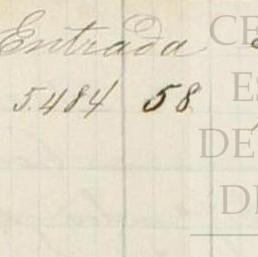 Entrada
5.484 58
CE
ES
DE
DE